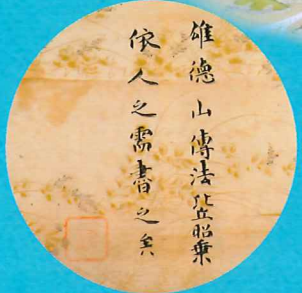 雄德山傳法比丘昭乗
依人之需書之矣